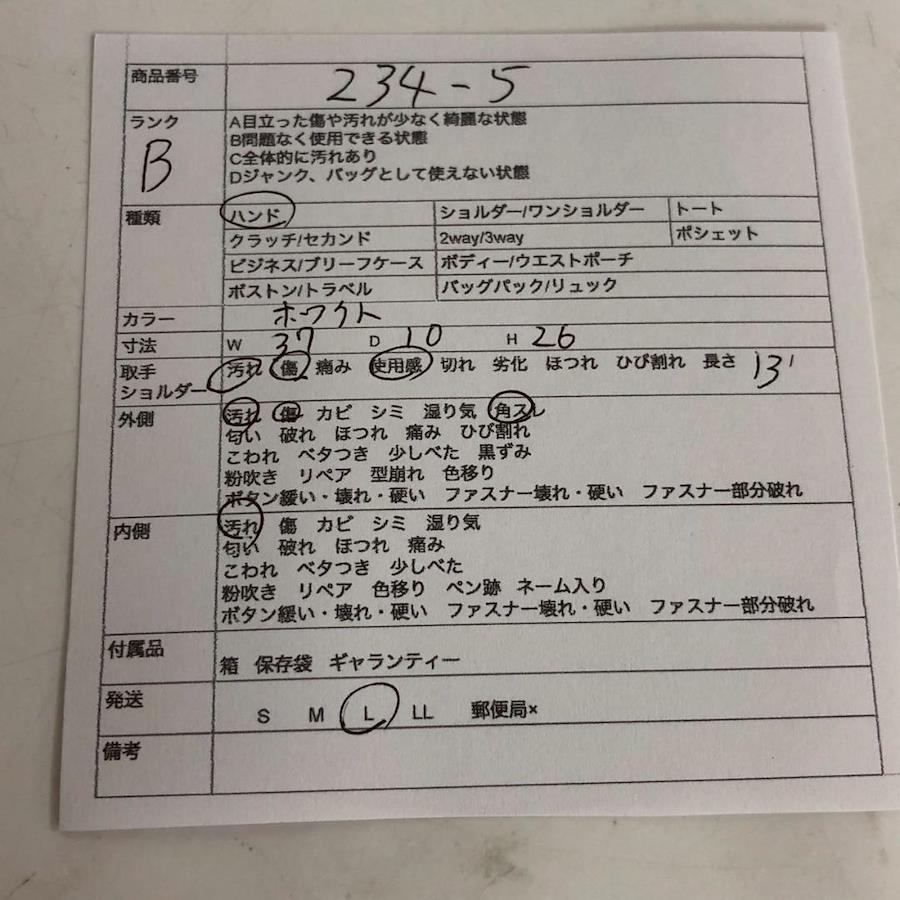 商品番号 234-5
ランク B
A目立った傷や汚れが少なく綺麗な状態
B問題なく使用できる状態
C全体的に汚れあり
Dジャンク、バッグとして使えない状態
種類 ハンド ショルダー/ワンショルダー トート
クラッチ/セカンド 2way/3way ポシェット
ビジネス/ブリーフケース ボディー/ウエストポーチ
ボストン/トラベル バッグパック/リュック
カラー ホワイト
寸法 W 37 D 10 H 26
取手 汚れ 傷 痛み 使用感 切れ 劣化 ほつれ ひび割れ 長さ 13
ショルダー
外側 汚れ 傷 カビ シミ 湿り気 角スレ
匂い 破れ ほつれ 痛み ひび割れ
こわれ ベタつき 少しべた 黒ずみ
粉吹き リペア 型崩れ 色移り
ボタン緩い・壊れ・硬い ファスナー壊れ・硬い ファスナー部分破れ
内側 汚れ 傷 カビ シミ 湿り気
匂い 破れ ほつれ 痛み
こわれ ベタつき 少しべた
粉吹き リペア 色移り ペン跡 ネーム入り
ボタン緩い・壊れ・硬い ファスナー壊れ・硬い ファスナー部分破れ
付属品 箱 保存袋 ギャランティー
発送 S M L LL 郵便局×
備考